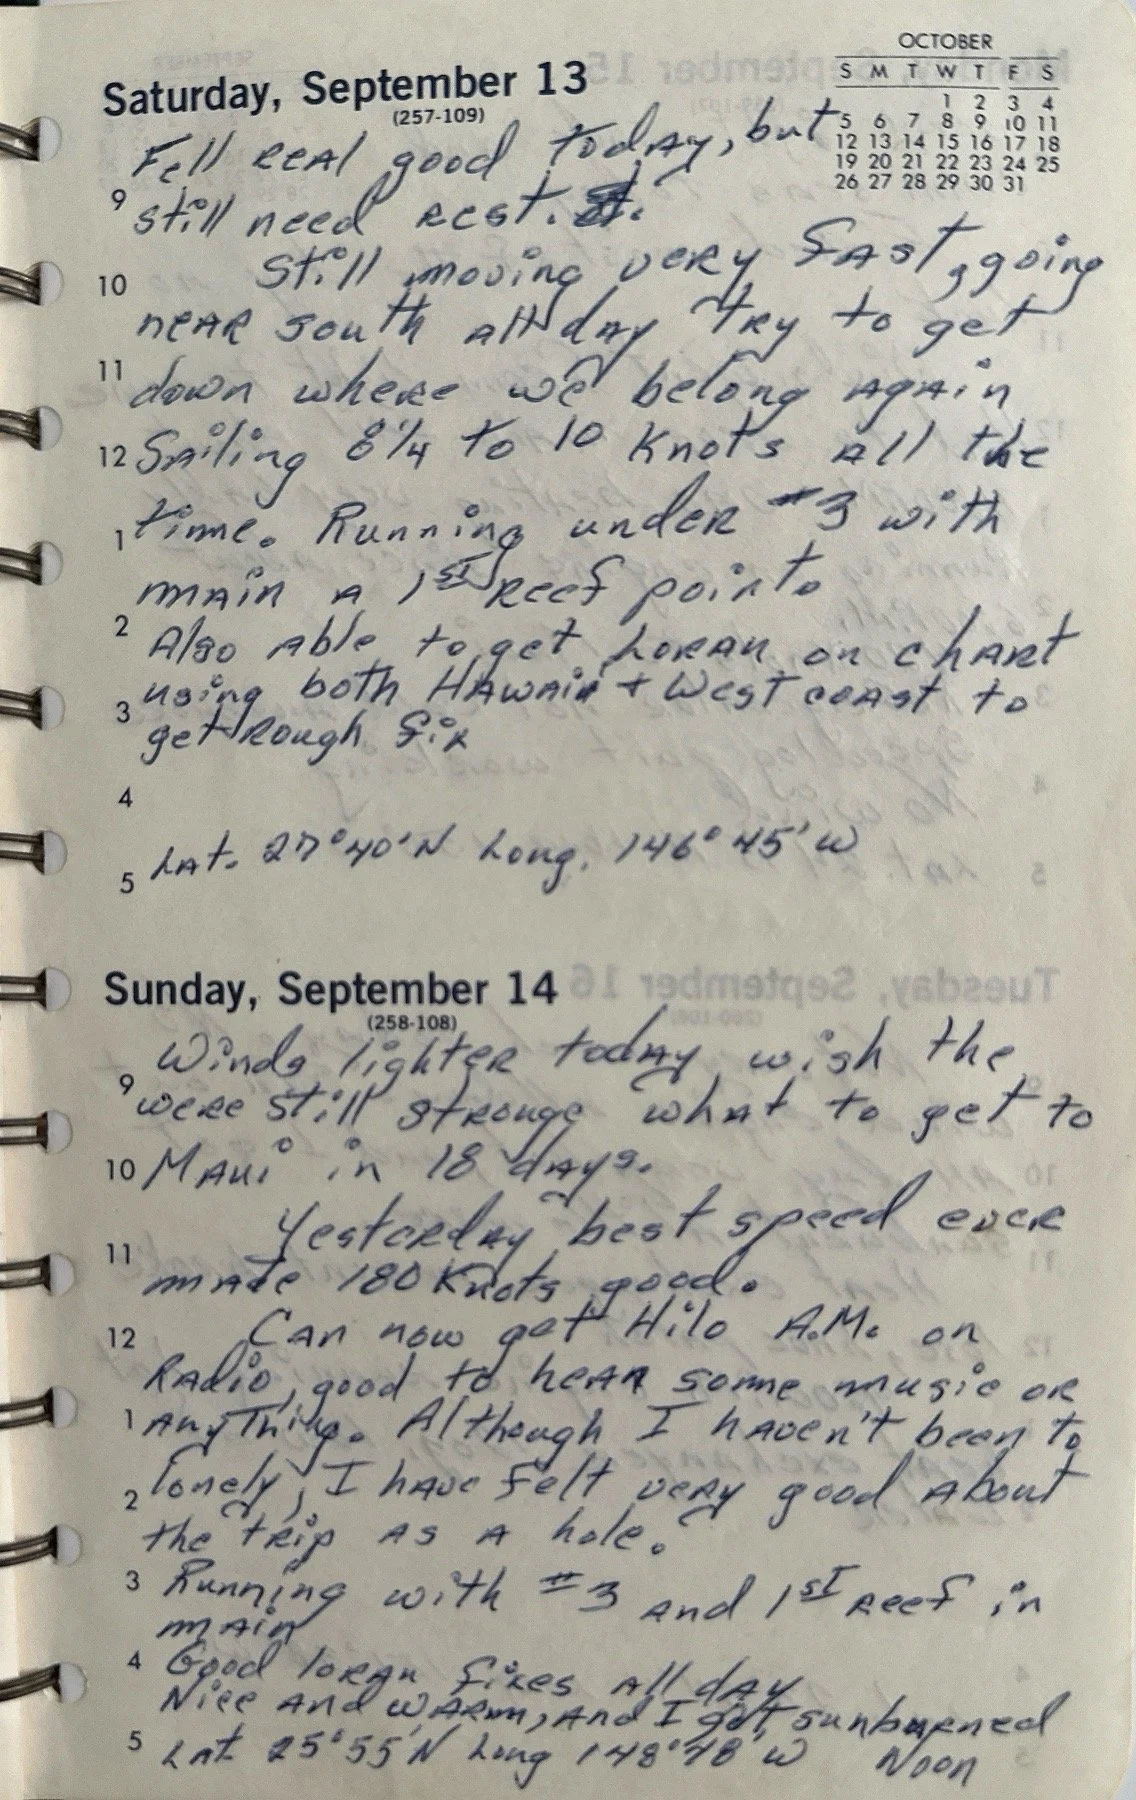 OCTOBER
S M T W T F S
1 2 3 4
5 6 7 8 9 10 11
12 13 14 15 16 17 18
19 20 21 22 23 24 25
26 27 28 29 30 31
Saturday, September 13
(257-109)
Fell real good today, but
9 still need rest.
10 Still moving very fast, going
near south all day try to get
11 down where we belong again
12 Sailing 8 1/4 to 10 Knots all the
1 time. Running under #3 with
main a 1st reef points
2 Also able to get Loran on chart
3 using both Hawaii + West coast to
get rough fix
4
5 Lat. 27°40'N Long. 146°45'W
Sunday, September 14
(258-108)
Winds lighter today wish the
9 were still stronge what to get to
10 Maui in 18 days.
Yesterday best speed ever
11 made 180 Knots good.
12 Can now get Hilo A.M. on
Radio, good to hear some music or
1 anything. Although I haven't been to
2 lonely, I have felt very good about
the trip as a hole.
3 Running with #3 and 1st reef in
main
4 Good loran fixes all day
Nice and warm, and I got sunburned
5 Lat 25°55'N Long 148°48'W Noon